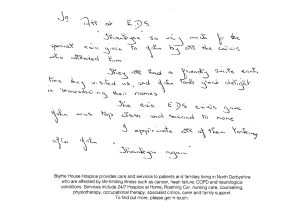 To Diff at EDS.
Thankyou so very much for the
special care given to John by all the carers
who attended him
They all had a friendly smile each
time they visited us, and John took great delight
in remembering their names
The care EDS carers gave
John was top class and second to none
I appreciate all of them
after John
"Thankyou again"
Blythe House Hospice provides care and services to patients and families living in North Derbyshire
who are affected by life-limiting illness such as cancer, heart failure, COPD and neurological
conditions. Services include 24/7 Hospice at Home, Roaming Car, nursing care, counselling,
physiotherapy, occupational therapy, specialist clinics, carer and family support.
To find out more, please get in touch.